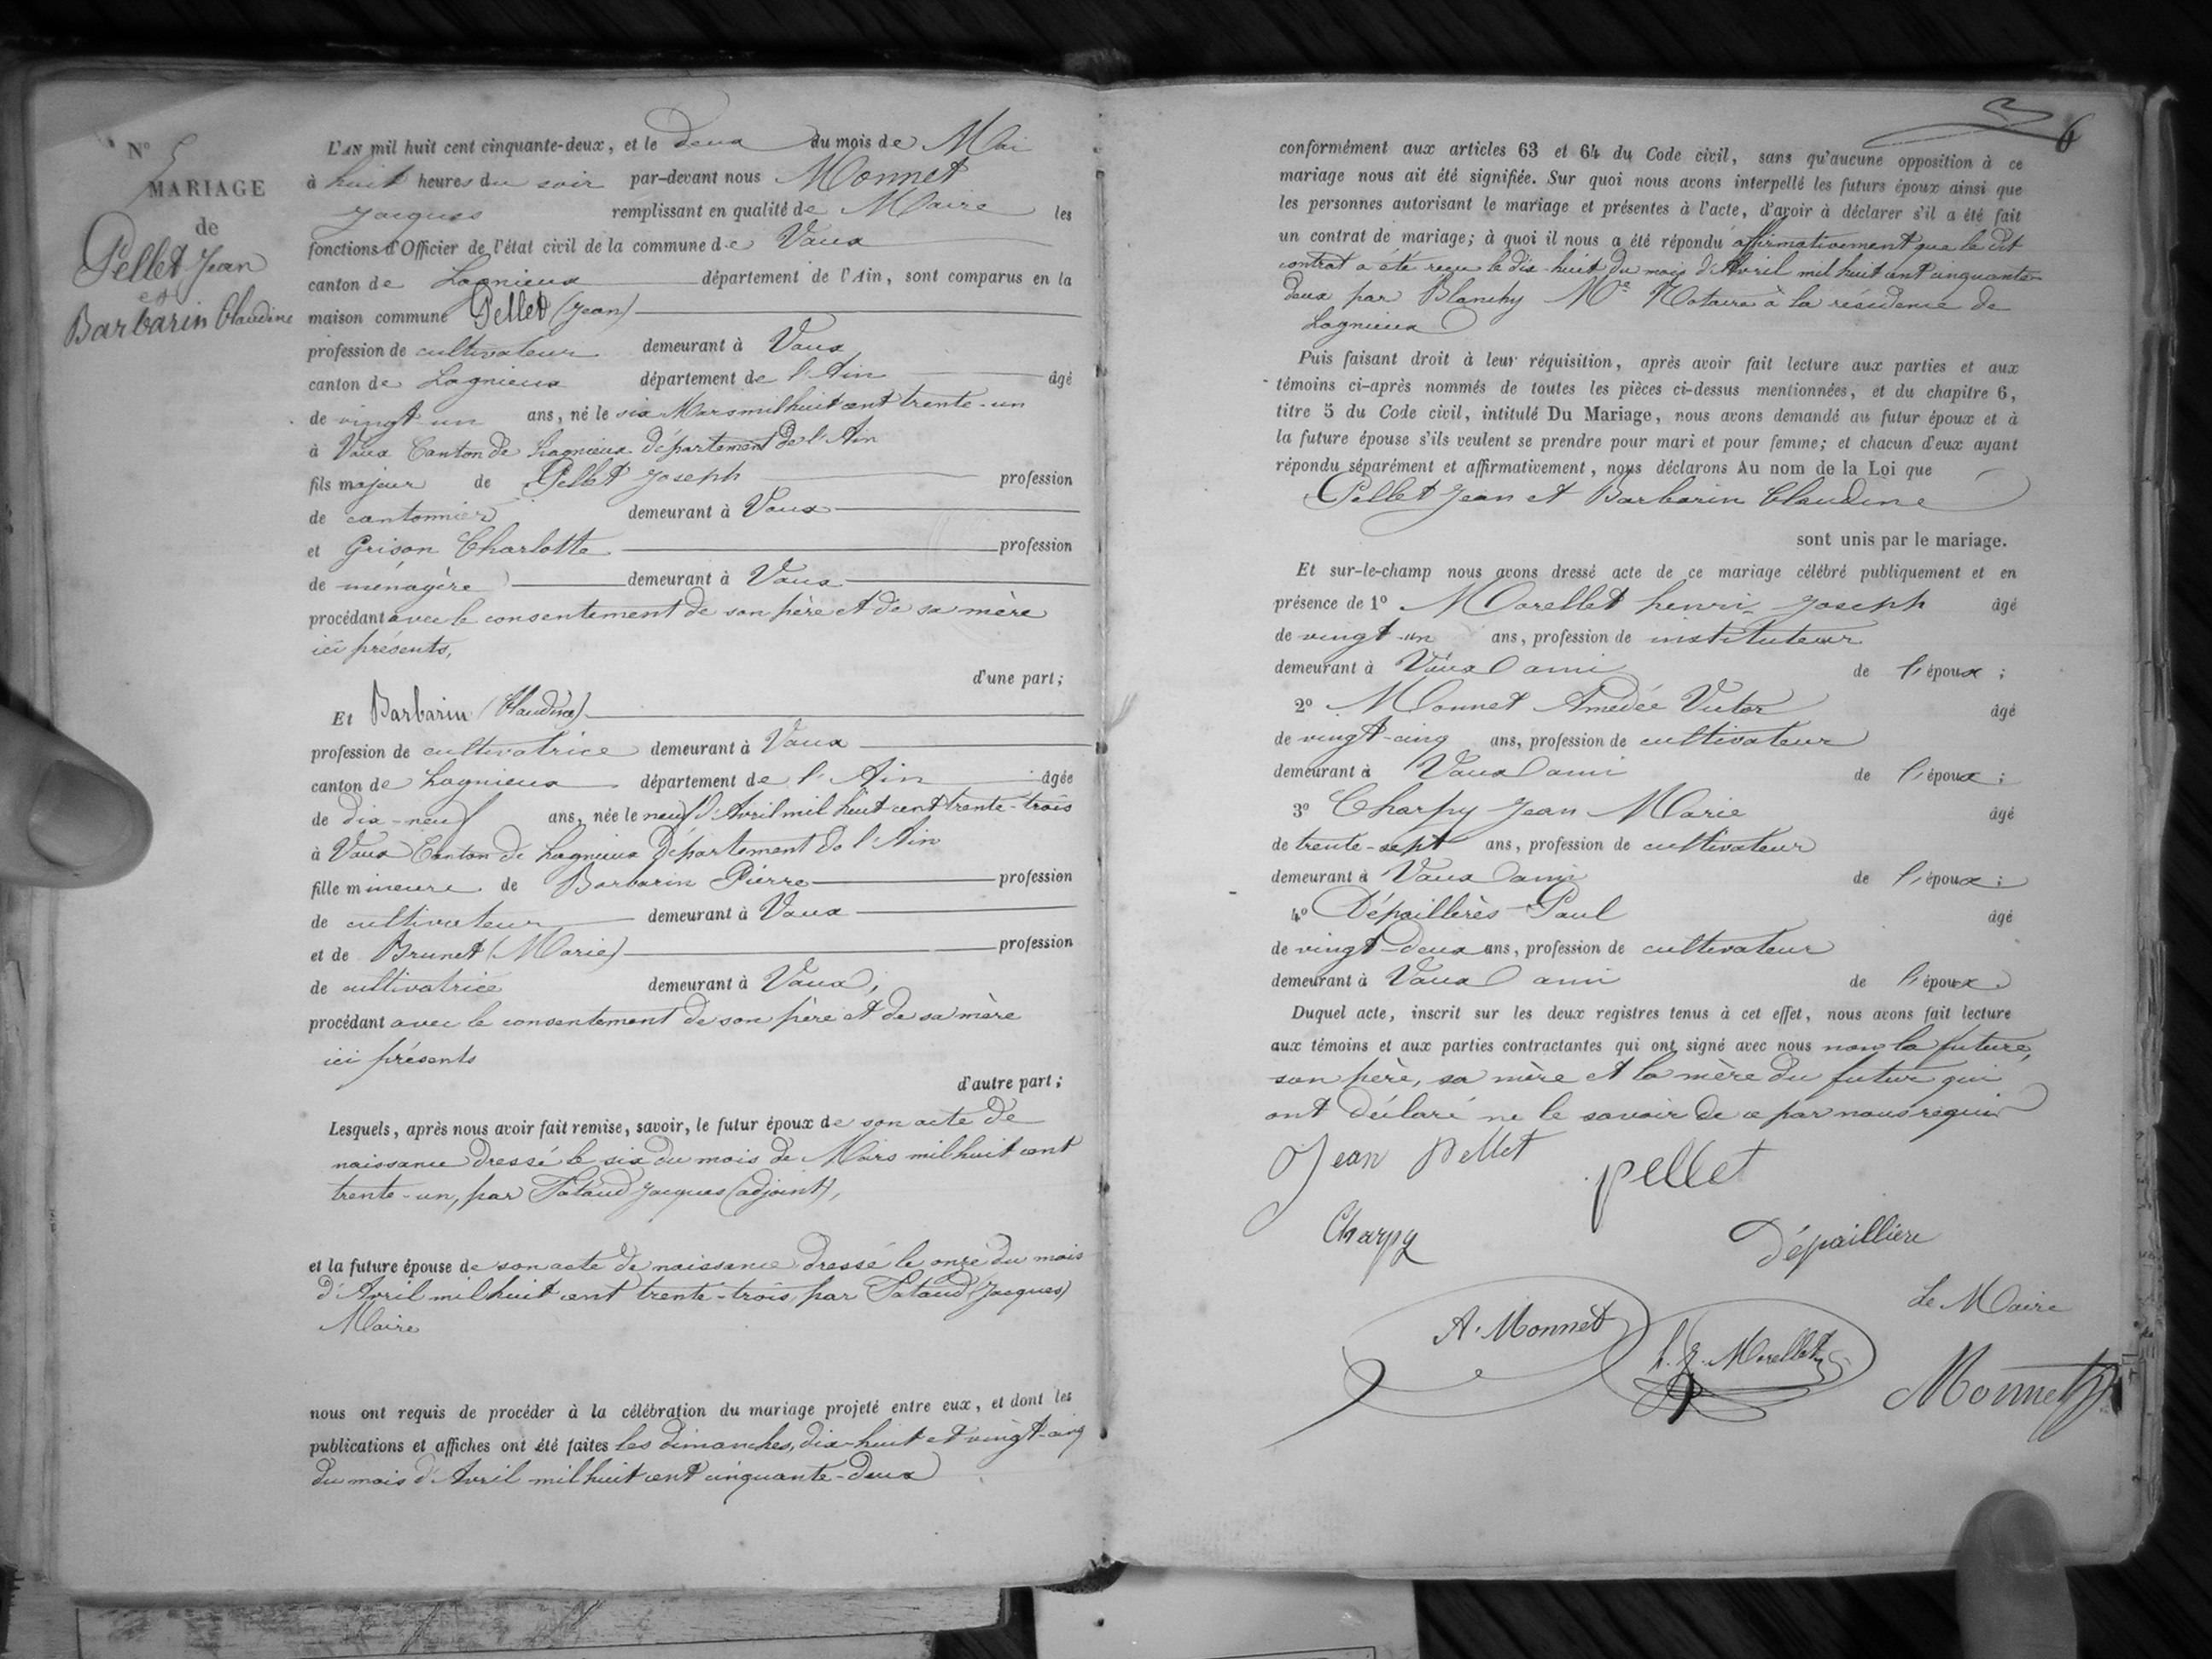 N° 5
MARIAGE
de
Pellet Jean
et
Barbarin Claudine
L'AN mil huit cent cinquante-deux, et le deux du mois de Mai
à huit heures du soir par-devant nous Monnet
Jacques remplissant en qualité de Maire les
fonctions d'Officier de l'état civil de la commune de Vaux
canton de Lagnieux département de l'Ain, sont comparus en la
maison commune Pellet (Jean)
profession de cultivateur demeurant à Vaux
canton de Lagnieux département de l'Ain âgé
de vingt un ans, né le six Mars mil huit cent trente-un
à Vaux Canton de Lagnieux département de l'Ain
fils majeur de Pellet Joseph profession
de cantonnier demeurant à Vaux
et Grison Charlotte profession
de ménagère demeurant à Vaux
procédant avec le consentement de son père et de sa mère
ici présents,
d'une part;
Et Barbarin (Claudine)
profession de cultivatrice demeurant à Vaux
canton de Lagnieux département de l'Ain âgée
de dix-neuf ans, née le neuf d'Avril mil huit cent trente-trois
à Vaux Canton de Lagnieux département de l'Ain
fille mineure de Barbarin Pierre profession
de cultivateur demeurant à Vaux
et de Brunet (Marie) profession
de cultivatrice demeurant à Vaux,
procédant avec le consentement de son père et de sa mère
ici présents
d'autre part;
Lesquels, après nous avoir fait remise, savoir, le futur époux de son acte de
naissance dressé le six du mois de Mars mil huit cent
trente-un, par Tataud Jacques (adjoint),
et la future épouse de son acte de naissance dressé le onze du mois
d'Avril mil huit cent trente-trois par Tataud (Jacques)
Maire
nous ont requis de procéder à la célébration du mariage projeté entre eux, et dont les
publications et affiches ont été faites les dimanches, dix-huit et vingt-cinq
du mois d'Avril mil huit cent cinquante-deux
6
conformément aux articles 63 et 64 du Code civil, sans qu'aucune opposition à ce
mariage nous ait été signifiée. Sur quoi nous avons interpellé les futurs époux ainsi que
les personnes autorisant le mariage et présentes à l'acte, d'avoir à déclarer s'il a été fait
un contrat de mariage; à quoi il nous a été répondu affirmativement que le dit
contrat a été reçu le dix-huit du mois d'Avril mil huit cent cinquante
deux par Blanchy Me Notaire à la résidence de
Lagnieux
Puis faisant droit à leur réquisition, après avoir fait lecture aux parties et aux
témoins ci-après nommés de toutes les pièces ci-dessus mentionnées, et du chapitre 6,
titre 5 du Code civil, intitulé Du Mariage, nous avons demandé au futur époux et à
la future épouse s'ils veulent se prendre pour mari et pour femme; et chacun d'eux ayant
répondu séparément et affirmativement, nous déclarons Au nom de la Loi que
Pellet Jean et Barbarin Claudine
sont unis par le mariage.
Et sur-le-champ nous avons dressé acte de ce mariage célébré publiquement et en
présence de 1° Morellet henri Joseph âgé
de vingt-un ans, profession de instituteur
demeurant à Vaux ami de l'époux;
2° Monnet Amédée Victor âgé
de vingt-cinq ans, profession de cultivateur
demeurant à Vaux ami de l'époux;
3° Charpy Jean Marie âgé
de trente-sept ans, profession de cultivateur
demeurant à Vaux ami de l'époux;
4° Dépaillères Paul âgé
de vingt-deux ans, profession de cultivateur
demeurant à Vaux ami de l'époux
Duquel acte, inscrit sur les deux registres tenus à cet effet, nous avons fait lecture
aux témoins et aux parties contractantes qui ont signé avec nous non la future,
son père, sa mère et la mère du futur qui
ont déclaré ne le savoir de ce par nous requis
Jean Pellet pellet
Charpy Dépaillière
Le Maire
A. Monnet h. J. Morellet Monnet